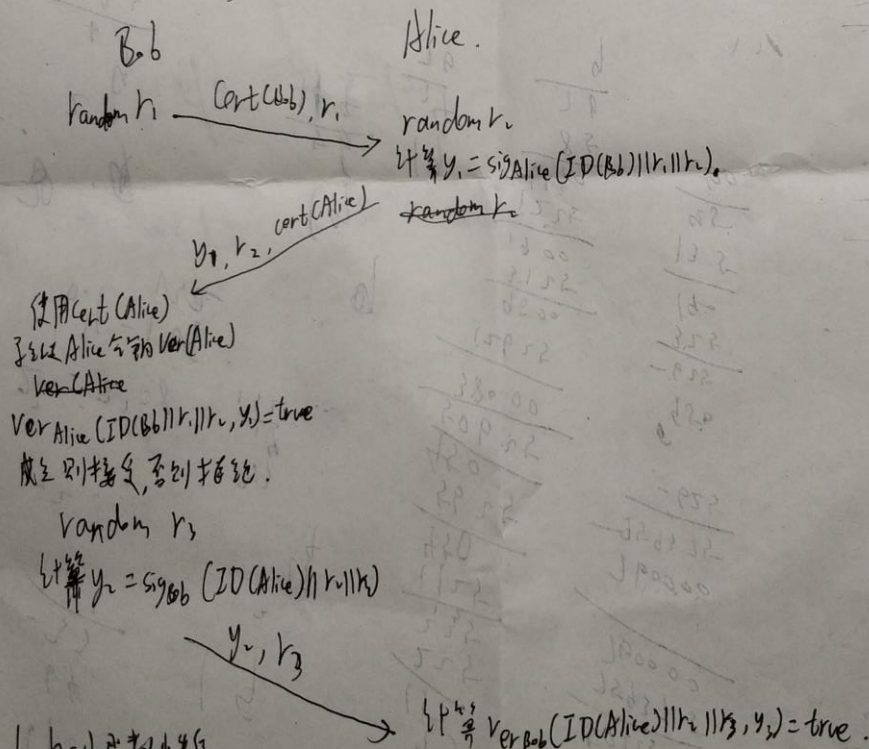 Bob
Alice.
random r₁
Cert(Bob), r₁
random r₂
计算 y₁ = sig_Alice(ID(Bob)||r₁||r₂).
random r₂
y₁, r₂, cert(Alice)
使用cert(Alice)
验证Alice公钥Ver(Alice)
Ver(Alice
Ver_Alice(ID(Bob||r₁||r₂, y₁)=true
成立则接受,否则拒绝.
random r₃
计算 y₂ = sig_Bob(ID(Alice)||r₂||r₃)
y₂, r₃
计算 Ver_Bob(ID(Alice)||r₂||r₃, y₂)=true.